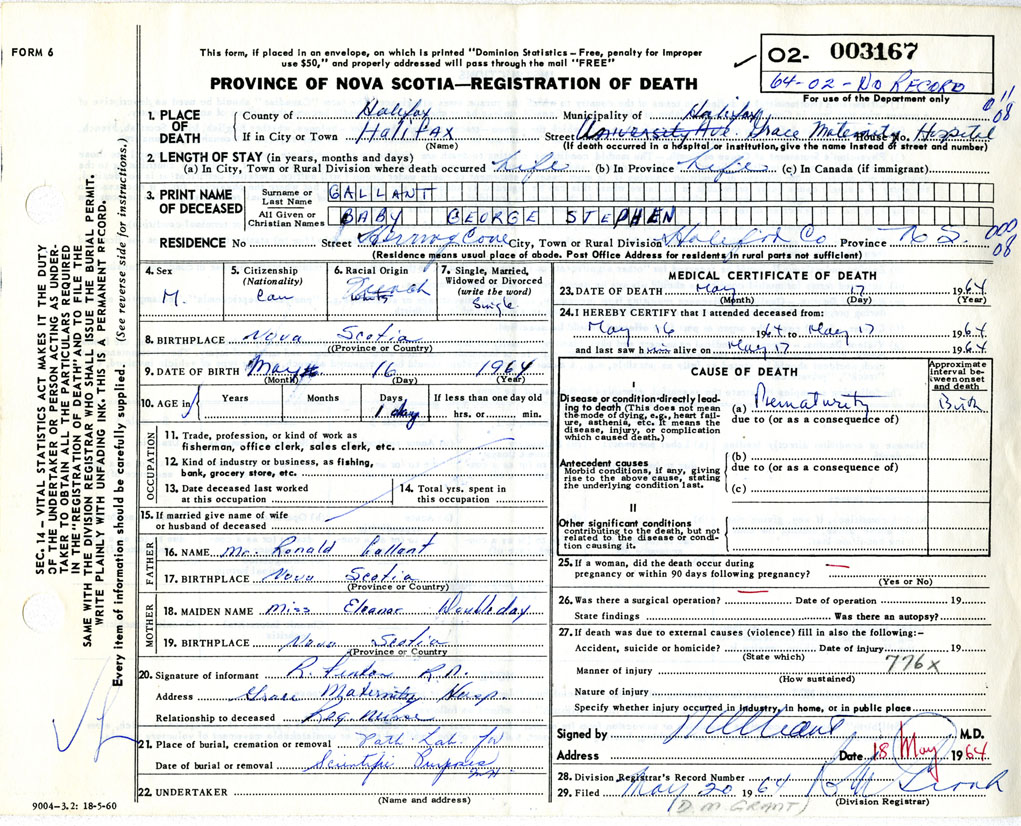 FORM 6
This form, if placed in an envelope, on which is printed "Dominion Statistics – Free, penalty for improper
use $50," and properly addressed will pass through the mail "FREE"
PROVINCE OF NOVA SCOTIA—REGISTRATION OF DEATH
02- 003167
64-02-NO RECORD
For use of the Department only
11
08
1. PLACE OF DEATH
County of Halifax Municipality of Halifax
If in City or Town HALIFAX Street University Ave. Grace Maternity Hospital
(Name) (If death occurred in a hospital or institution, give the name instead of street and number)
2. LENGTH OF STAY (in years, months and days)
(a) In City, Town or Rural Division where death occurred Life (b) In Province Life (c) In Canada (if immigrant)
3. PRINT NAME OF DECEASED
Surname or Last Name GALLANT
All Given or Christian Names BABY GEORGE STEPHEN
RESIDENCE No Street Herring Cove City, Town or Rural Division Halifax Co Province N.S. 000
08
(Residence means usual place of abode. Post Office Address for residents in rural parts not sufficient)
4. Sex M.
5. Citizenship (Nationality) Can
6. Racial Origin French White
7. Single, Married, Widowed or Divorced (write the word) Single
8. BIRTHPLACE Nova Scotia
(Province or Country)
9. DATE OF BIRTH May 16 1964
(Month) (Day) (Year)
10. AGE in Years Months Days If less than one day old
1 day hrs. or min.
OCCUPATION
11. Trade, profession, or kind of work as
fisherman, office clerk, sales clerk, etc.
12. Kind of industry or business, as fishing,
bank, grocery store, etc.
13. Date deceased last worked
at this occupation
14. Total yrs. spent in
this occupation
15. If married give name of wife
or husband of deceased
FATHER
16. NAME Mr. Ronald Gallant
17. BIRTHPLACE Nova Scotia
(Province or Country)
MOTHER
18. MAIDEN NAME Miss Eleanor Doubleday
19. BIRTHPLACE Nova Scotia
(Province or Country)
20. Signature of informant R. R.N.
Address Grace Maternity Hosp.
Relationship to deceased Reg Nurse
21. Place of burial, cremation or removal Path Lab for
Date of burial or removal Scientific Purposes
22. UNDERTAKER
(Name and address)
9004-3.2: 18-5-60
MEDICAL CERTIFICATE OF DEATH
23. DATE OF DEATH May 17 1964
(Month) (Day) (Year)
24. I HEREBY CERTIFY that I attended deceased from:
May 16 1964 to May 17 1964
and last saw him alive on May 17 1964
CAUSE OF DEATH
Approximate interval between onset and death
I
Disease or condition directly leading
to death (This does not mean
the mode of dying, e.g., heart failure,
asthenia, etc. It means the
disease, injury, or complication
which caused death.)
(a) Prematurity Birth
due to (or as a consequence of)
Antecedent causes
Morbid conditions, if any, giving
rise to the above cause, stating
the underlying condition last.
(b)
due to (or as a consequence of)
(c)
II
Other significant conditions
contributing to the death, but not
related to the disease or condition
causing it.
25. If a woman, did the death occur during
pregnancy or within 90 days following pregnancy? —
(Yes or No)
26. Was there a surgical operation? — Date of operation 19
State findings Was there an autopsy?
27. If death was due to external causes (violence) fill in also the following:–
Accident, suicide or homicide? Date of injury 19
(State which)
776x
Manner of injury
(How sustained)
Nature of injury
Specify whether injury occurred in industry, in home, or in public place
Signed by M.D.
Address Date 18 May 1964
28. Division Registrar's Record Number
29. Filed May 20 1964
(D.M. GRANT) (Division Registrar)
SEC. 14 – VITAL STATISTICS ACT MAKES IT THE DUTY
OF THE UNDERTAKER OR PERSON ACTING AS UNDERTAKER
TO OBTAIN ALL THE PARTICULARS REQUIRED
IN THE "REGISTRATION OF DEATH" AND TO FILE THE
SAME WITH THE DIVISION REGISTRAR WHO SHALL ISSUE THE BURIAL PERMIT.
WRITE PLAINLY WITH UNFADING INK. THIS IS A PERMANENT RECORD.
Every item of information should be carefully supplied. (See reverse side for instructions.)